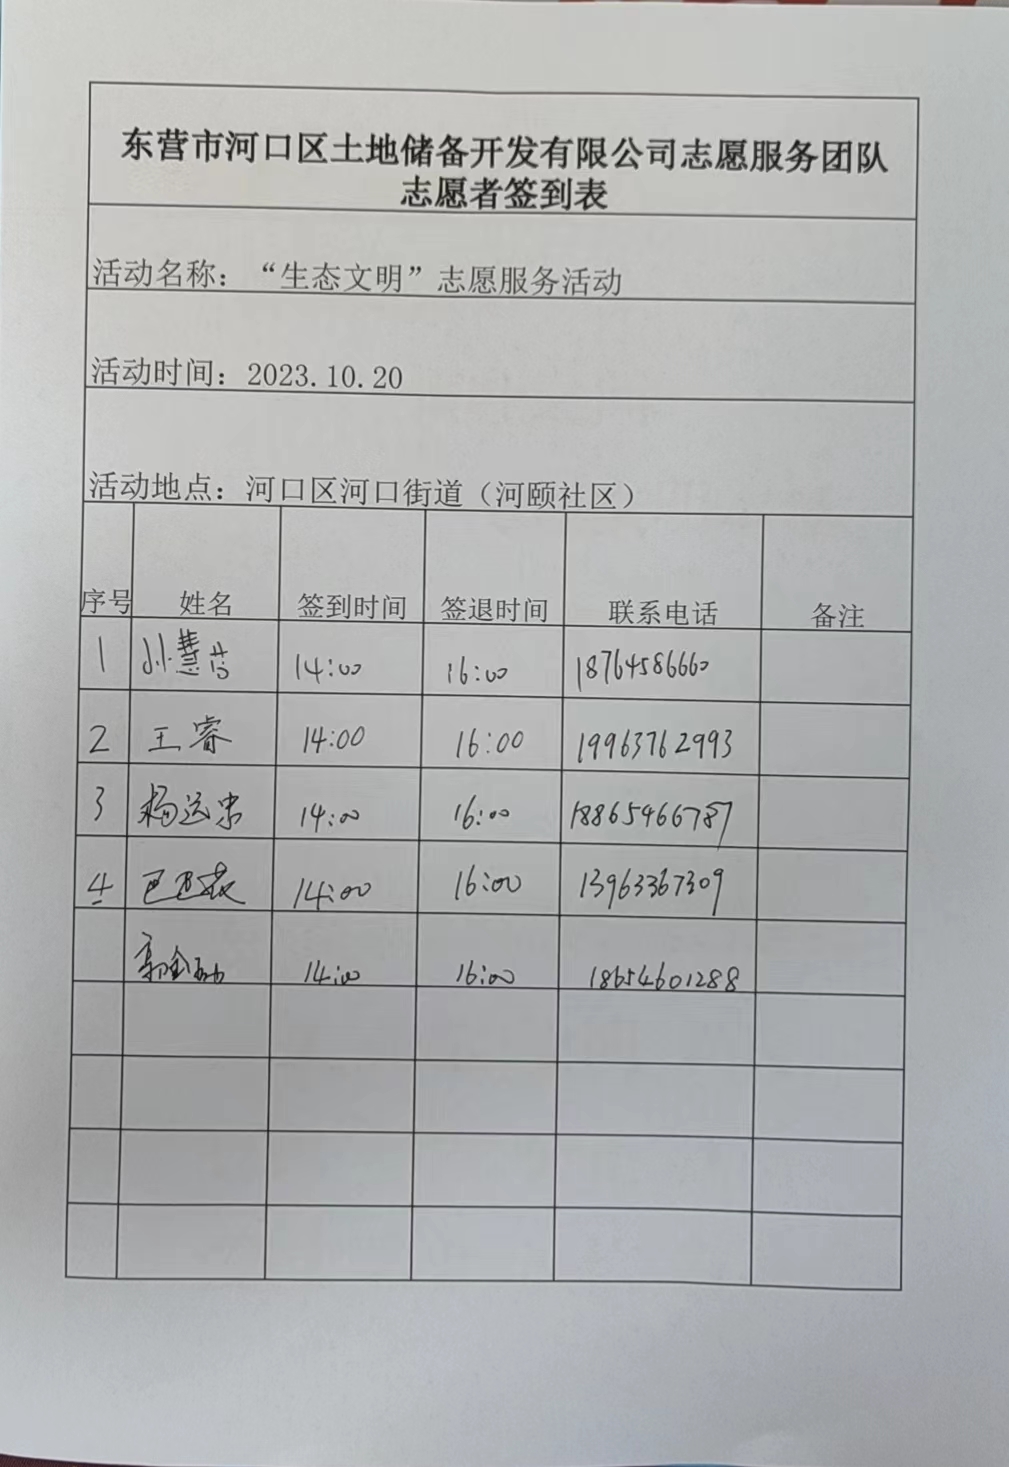 东营市河口区土地储备开发有限公司志愿服务团队
志愿者签到表
活动名称：“生态文明”志愿服务活动
活动时间：2023.10.20
活动地点：河口区河口街道（河颐社区）
序号 姓名 签到时间 签退时间 联系电话 备注
1 孙慧 14:00 16:00 18764586660
2 王睿 14:00 16:00 19963762993
3 杨远忠 14:00 16:00 18865466787
4 14:00 16:00 13963367309
14:00 16:00 18654601288